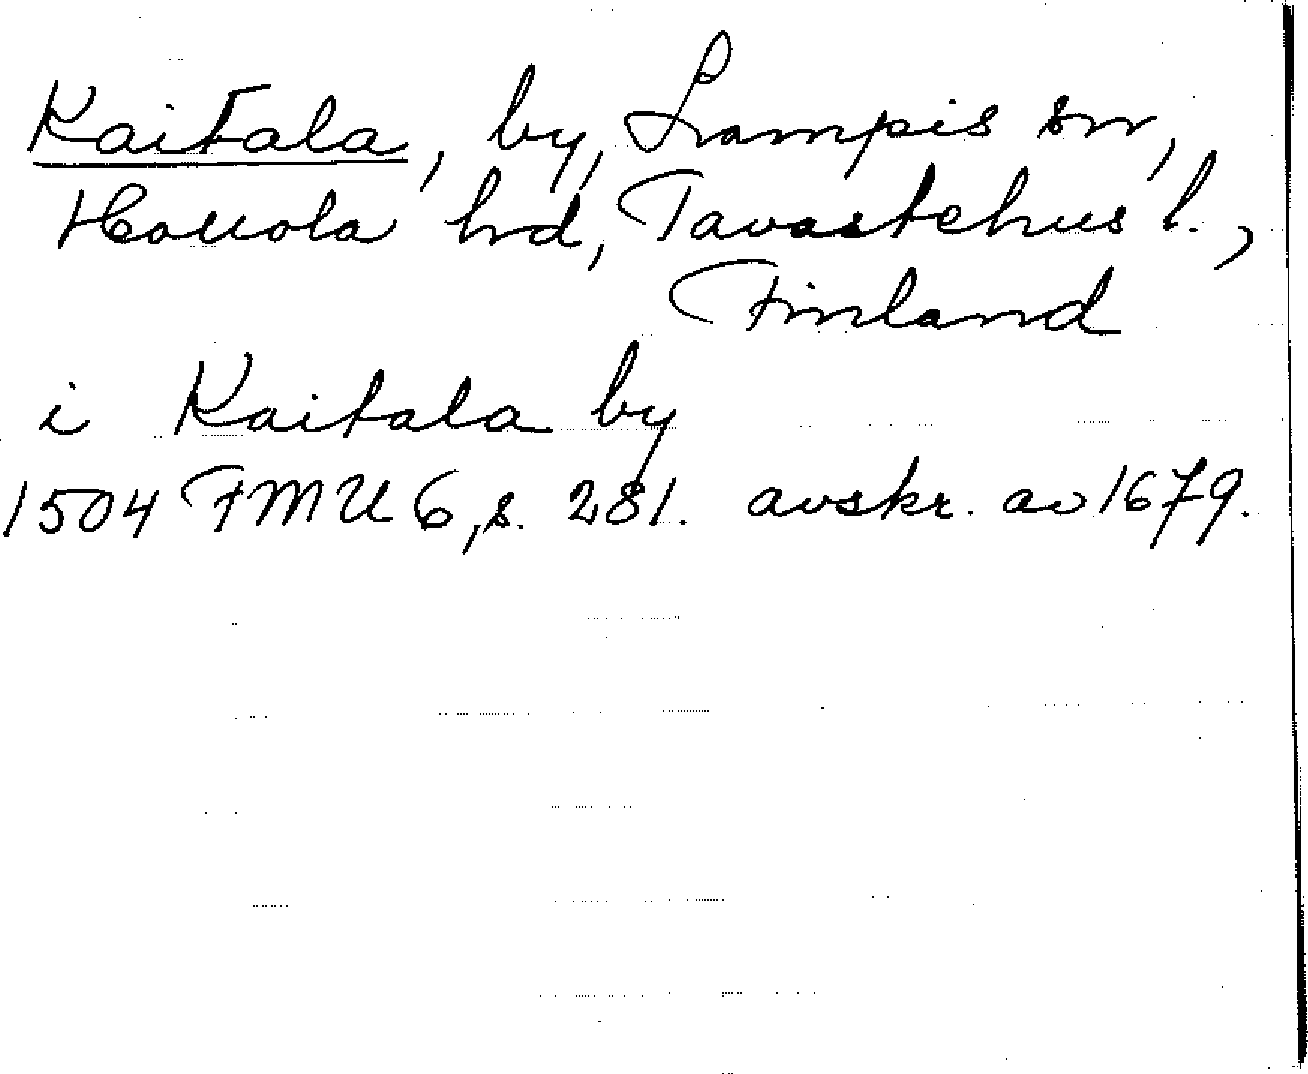 Kaitala, by, Lampis sn,
Hauola hrd, Tavastehus l.,
Finland
i Kaitala by
1504 FMU 6, s. 281. avskr. av 1679.